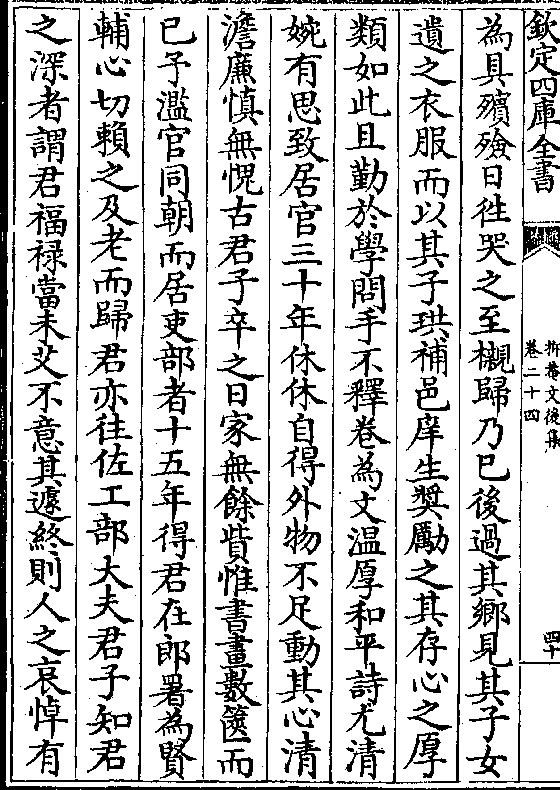 欽定四庫全書
抑菴文後集
卷二十四
四十
為具殯殮日徃哭之至櫬歸乃已後過其鄉見其子女
遺之衣服而以其子珙補邑庠生奬勵之其存心之厚
類如此且勤於學問手不釋卷為文温厚和平詩尤清
婉有思致居官三十年休休自得外物不足動其心清
澹廉慎無愧古君子卒之日家無餘貲惟書畫數篋而
已予濫官同朝而居吏部者十五年得君在郎署為賢
輔心切賴之及老而歸君亦往佐工部大夫君子知君
之深者謂君福禄當未艾不意其遽終則人之哀悼有